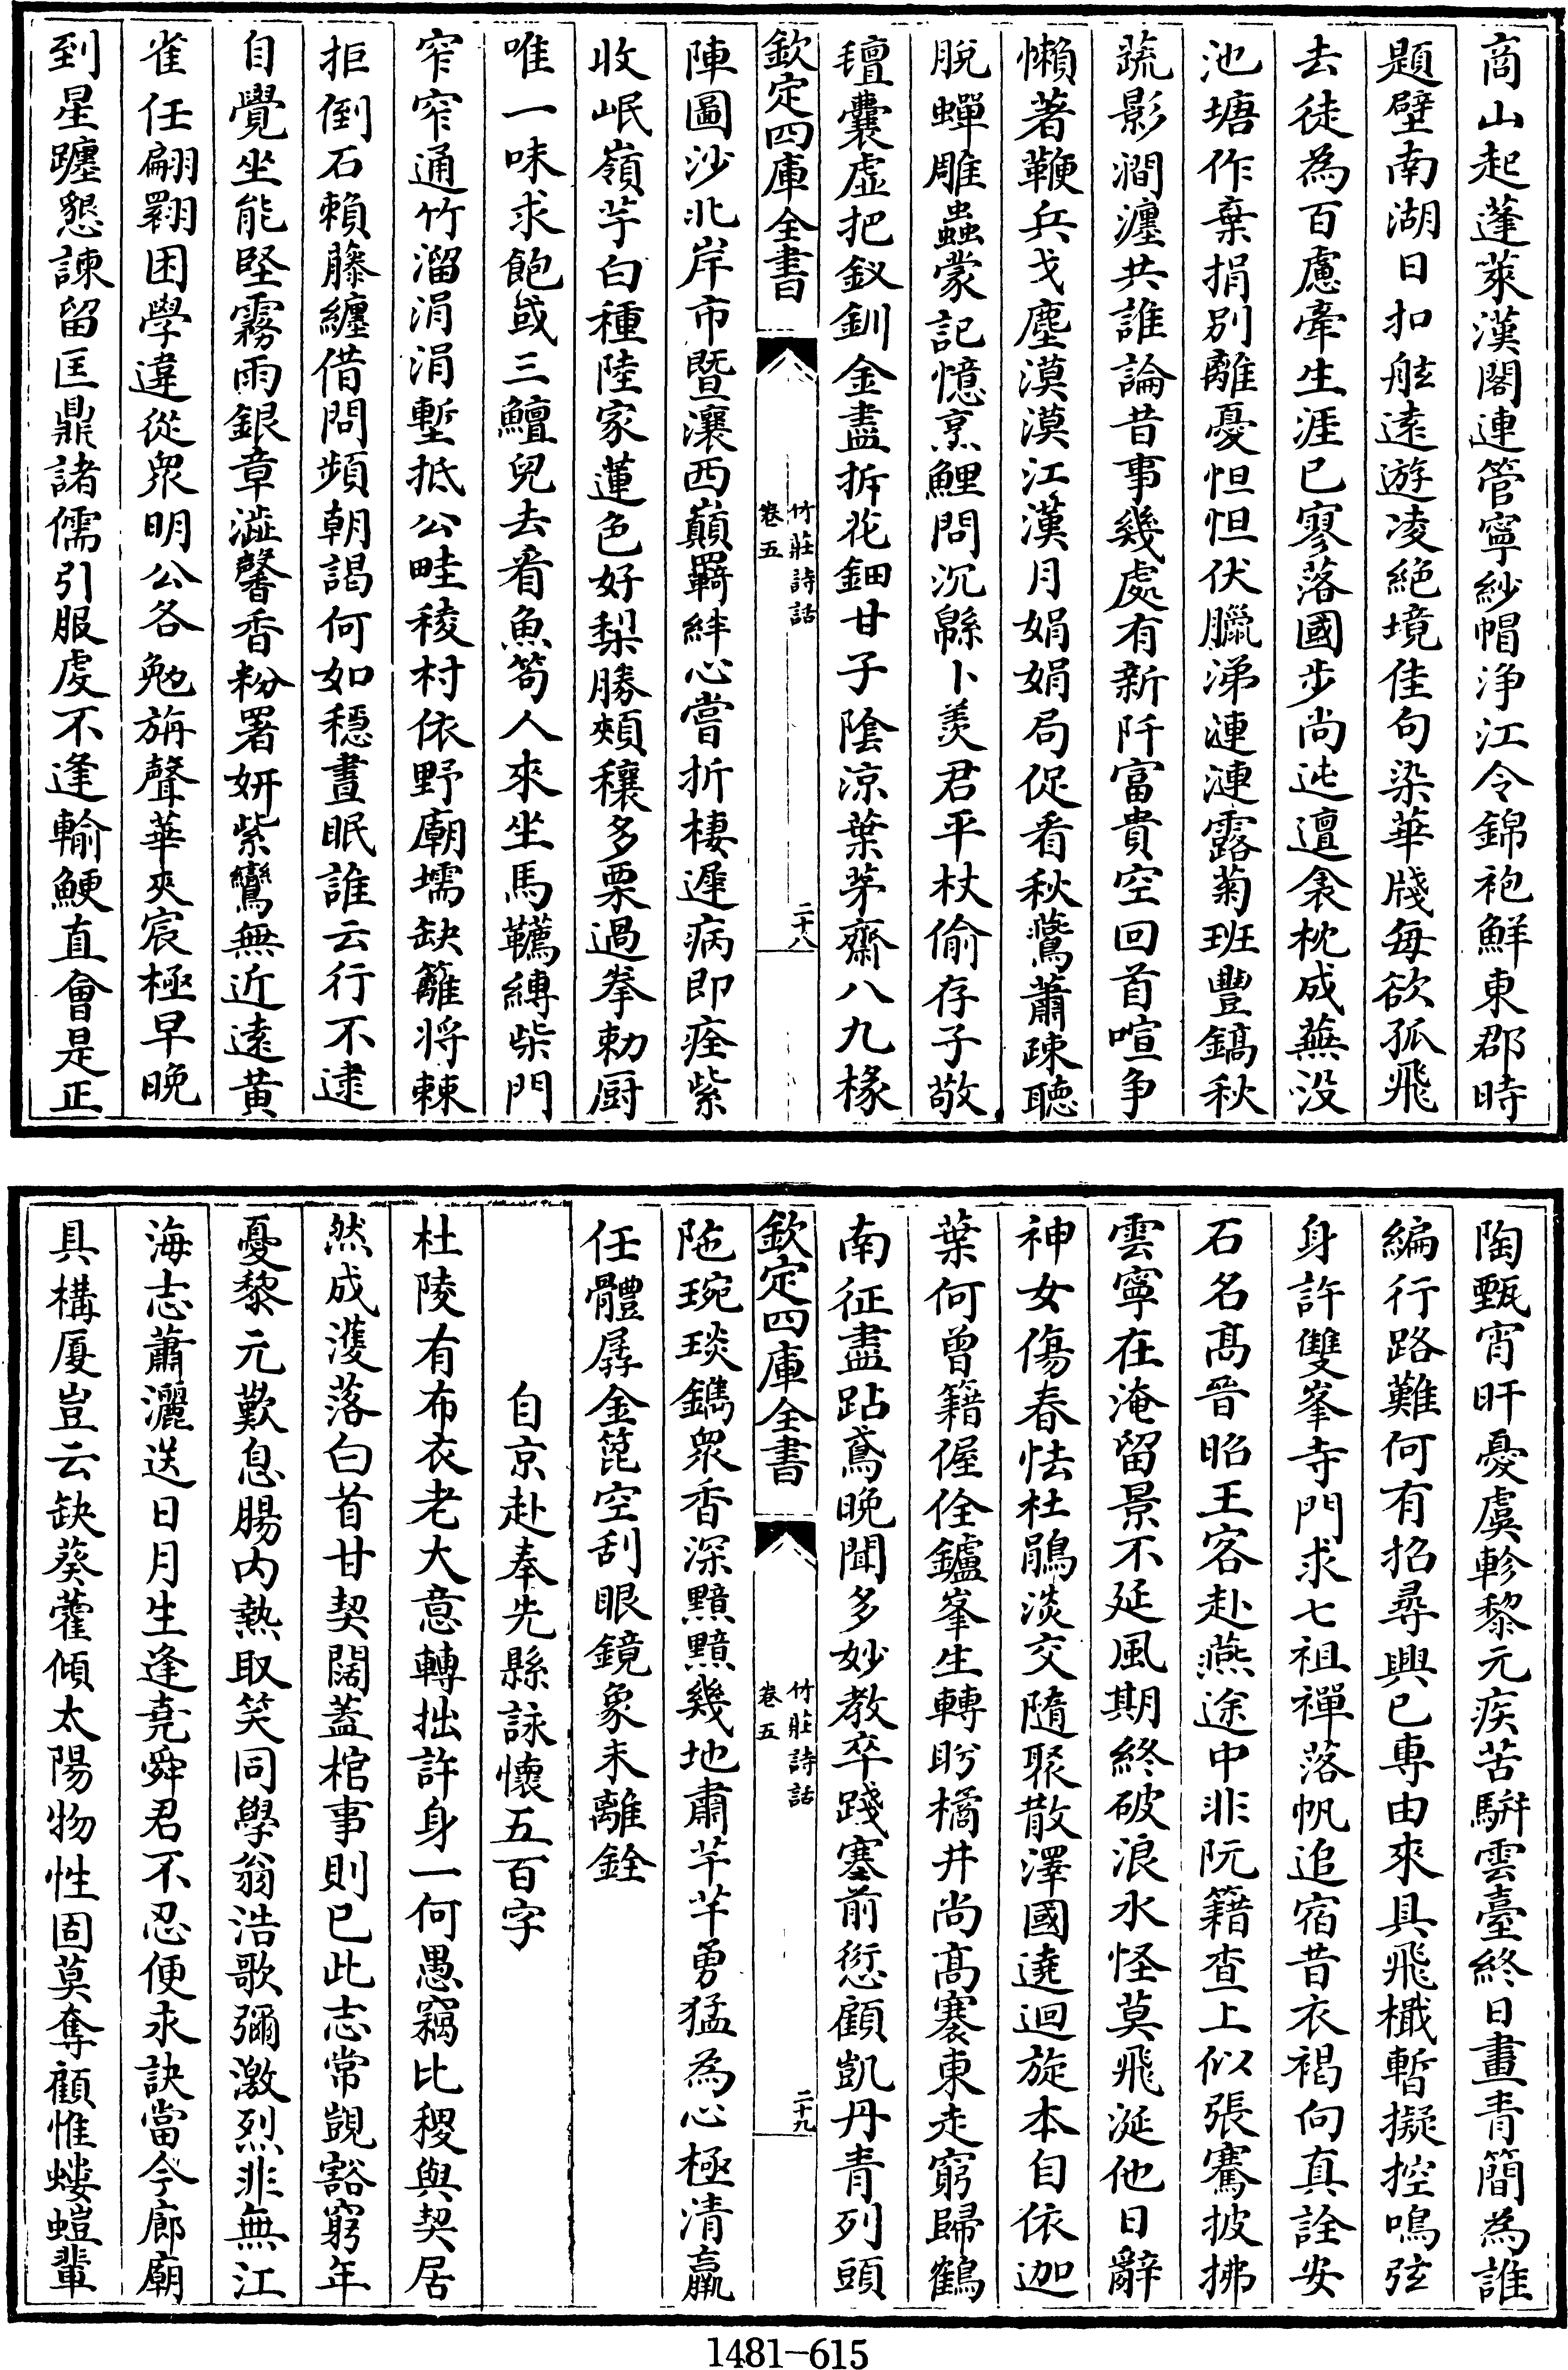 商山起蓬萊漢閣連管寧紗帽浄江令錦袍鮮東郡時
題壁南湖日扣舷遠遊凌絶境佳句染華牋每欲孤飛
去徒為百慮牽生涯已寥落國步尚迍邅衾枕成蕪没
池塘作棄捐别離憂怛怛伏臘涕漣漣露菊班豐鎬秋
蔬影澗瀍共誰論昔事幾處有新阡富貴空回首喧争
懶著鞭兵戈塵漠漠江漢月娟娟局促看秋鷰蕭疎聽
脱蟬雕蟲蒙記憶烹鯉問沉緜卜羨君平杖偷存子敬
氊囊虚把釵釧金盡拆花鈿甘子陰凉葉茅齋八九椽
欽定四庫全書
竹莊詩話
卷五
二十八
陣圖沙北岸市暨瀼西巔羇絆心嘗折棲遲病即痊紫
收岷嶺芋白種陸家蓮色好梨勝頰穰多栗過拳勅厨
唯一味求飽或三鱣兒去看魚笱人來坐馬韉縛柴門
窄窄通竹溜涓涓塹抵公畦稜村依野廟壖缺籬将棘
拒倒石賴藤纏借問頻朝謁何如穩晝眠誰云行不逮
自覺坐能堅霧雨銀章澁馨香粉署妍紫鸞無近遠黄
雀任翩翾困學違從衆明公各勉旃聲華夾宸極早晚
到星躔懇諫留匡鼎諸儒引服虔不逢輸鯁直會是正
陶甄宵旰憂虞軫黎元疾苦駢雲臺終日畫青簡為誰
編行路難何有招尋興已専由來具飛檝暫擬控鳴弦
身許雙峯寺門求七祖禪落帆追宿昔衣褐向真詮安
石名髙晉昭王客赴燕途中非阮籍查上似張騫披拂
雲寧在淹留景不延風期終破浪水怪莫飛涎他日辭
神女傷春怯杜鵑淡交随聚散澤國遶迴旋本自依迦
葉何曾籍偓佺鑪峯生轉盼橘井尚髙褰東走窮歸鶴
南征盡跕鳶晚聞多妙教卒踐塞前愆顧凱丹青列頭
欽定四庫全書
竹莊詩話
卷五
二十九
陁琬琰鐫衆香深黯黯幾地肅芊芊勇猛為心極清羸
任體孱金箆空刮眼鏡象未離銓
自京赴奉先縣詠懷五百字
杜陵有布衣老大意轉拙許身一何愚竊比稷與契居
然成濩落白首甘契闊蓋棺事則已此志常覬豁窮年
憂黎元歎息腸内熱取笑同學翁浩歌彌激烈非無江
海志蕭灑送日月生逢堯舜君不忍便永訣當今廊廟
具構厦豈云缺葵藿傾太陽物性固莫奪顧惟螻螘輩
1481-615